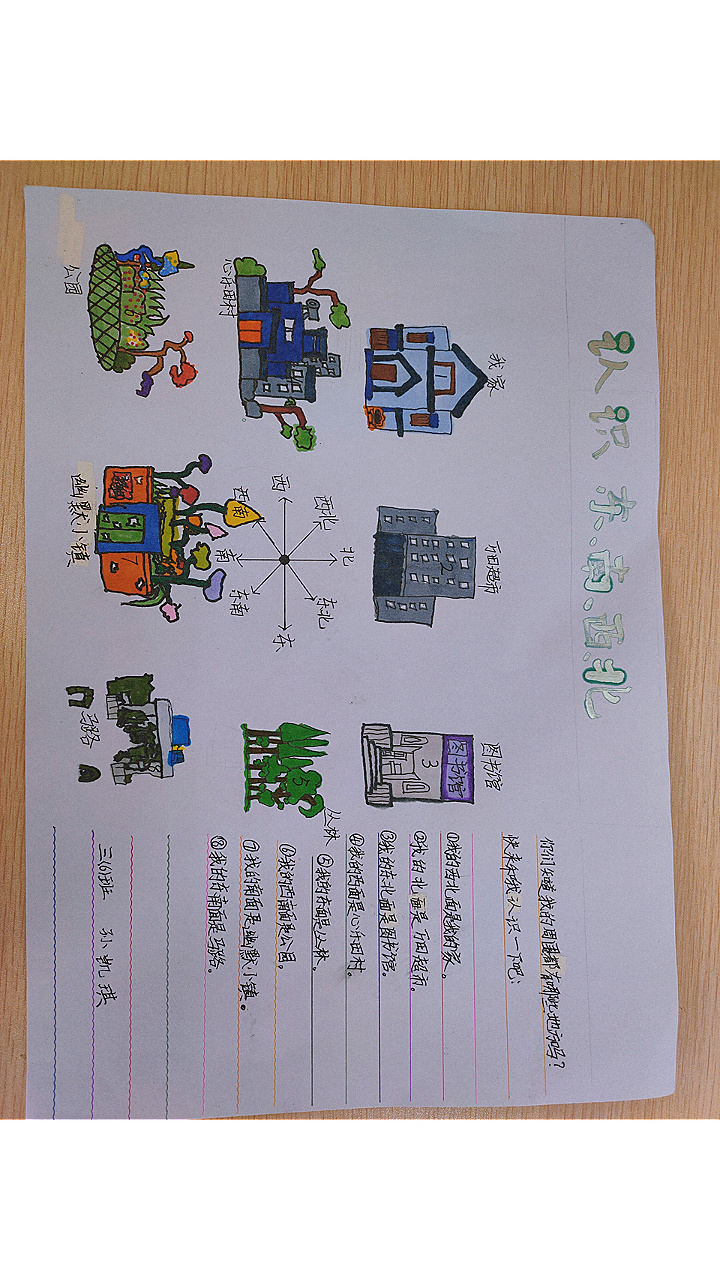 认识东·南·西·北
我家
万田超市
图书馆
图书馆
2
3
心乐田村
西
西北
北
东北
东
东南
南
西南
丛林
5
公园
幽默小镇
7
马路
你们知道我的周围都有哪些地方吗？
快来和我认识一下吧！
①我的西北面是我的家。
②我的北面是万田超市。
③我的东北面是图书馆。
④我的西面是心乐田村。
⑤我的东面是丛林。
⑥我的西南面是公园。
⑦我的南面是幽默小镇。
⑧我的东南面是马路。
三(6)班 孙凯琪